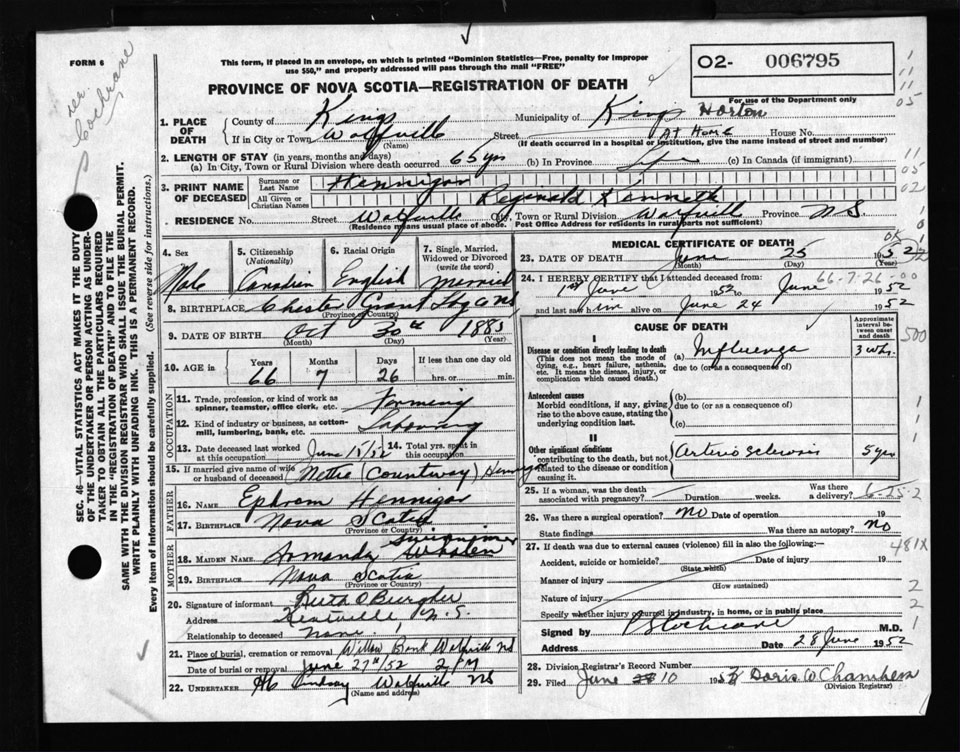 FORM 6
This form, if placed in an envelope, on which is printed "Dominion Statistics—Free, penalty for improper
use $50," and properly addressed will pass through the mail "FREE"
O2- 006795
For use of the Department only
PROVINCE OF NOVA SCOTIA—REGISTRATION OF DEATH
1. PLACE OF DEATH County of Kings Municipality of Kings Horton
If in City or Town Wolfville (Name) Street At Home House No.
(If death occurred in a hospital or institution, give the name instead of street and number)
2. LENGTH OF STAY (in years, months and days)
(a) In City, Town or Rural Division where death occurred 65 yrs (b) In Province (c) In Canada (if immigrant)
3. PRINT NAME OF DECEASED Surname or Last Name Hennigar
All Given or Christian Names Reginald Kenneth
RESIDENCE No. Street Wolfville City, Town or Rural Division Wolfville Province N.S.
(Residence means usual place of abode. Post Office Address for residents in rural parts not sufficient)
4. Sex Male
5. Citizenship (Nationality) Canadian
6. Racial Origin English
7. Single, Married, Widowed or Divorced (write the word) Married
8. BIRTHPLACE Chester Grant NS
(Province or Country)
9. DATE OF BIRTH Oct 30th 1885
(Month) (Day) (Year)
10. AGE in Years 66 Months 7 Days 26 If less than one day old hrs. or min.
OCCUPATION
11. Trade, profession, or kind of work as spinner, teamster, office clerk, etc. Farming
12. Kind of industry or business, as cotton-mill, lumbering, bank, etc. Labouring
13. Date deceased last worked at this occupation June /52
14. Total yrs. spent in this occupation
15. If married give name of wife or husband of deceased Nettie (Countway) Hennigar
FATHER
16. NAME Ephram Hennigar
17. BIRTHPLACE Nova Scotia
(Province or Country)
MOTHER
18. MAIDEN NAME Armanda Swinimer Whalen
19. BIRTHPLACE Nova Scotia
(Province or Country)
20. Signature of informant Ruth
Address Kentville N.S.
Relationship to deceased None
21. Place of burial, cremation or removal Willow Bank Wolfville NS
Date of burial or removal June 27th/52 2 PM
22. UNDERTAKER Lindsay Wolfville NS
(Name and address)
MEDICAL CERTIFICATE OF DEATH
23. DATE OF DEATH June 25 1952
(Month) (Day) (Year)
OK
24. I HEREBY CERTIFY that I attended deceased from:
66-7-26-00
1st June 1952 to June 1952
and last saw him alive on June 24 1952
CAUSE OF DEATH
Approximate interval between onset and death
I
Disease or condition directly leading to death (a) Influenza 3 wks.
(This does not mean the mode of dying, e.g., heart failure, asthenia, etc. It means the disease, injury, or complication which caused death.)
due to (or as a consequence of)
Antecedent causes
Morbid conditions, if any, giving rise to the above cause, stating the underlying condition last.
(b)
due to (or as a consequence of)
(c)
II
Other significant conditions
contributing to the death, but not related to the disease or condition causing it.
Arterio sclerosis 5 yrs
25. If a woman, was the death associated with pregnancy? Duration weeks. Was there a delivery? 6-25-2
26. Was there a surgical operation? NO Date of operation 19
State findings Was there an autopsy? NO
27. If death was due to external causes (violence) fill in also the following:—
Accident, suicide or homicide? (State which) Date of injury 19
Manner of injury (How sustained)
Nature of injury
Specify whether injury occurred in industry, in home, or in public place
Signed by Cochrane M.D.
Address Date 28 June 1952
28. Division Registrar's Record Number
29. Filed June 10 195 Doris W Chambers
(Division Registrar)
SEC. 46—VITAL STATISTICS ACT MAKES IT THE DUTY
OF THE UNDERTAKER OR PERSON ACTING AS UNDER-
TAKER TO OBTAIN ALL THE PARTICULARS REQUIRED
IN THE "REGISTRATION OF DEATH" AND TO FILE THE
SAME WITH THE DIVISION REGISTRAR WHO SHALL ISSUE THE BURIAL PERMIT.
WRITE PLAINLY WITH UNFADING INK. THIS IS A PERMANENT RECORD.
Every item of information should be carefully supplied. (See reverse side for instructions.)
Cochrane
500
481X